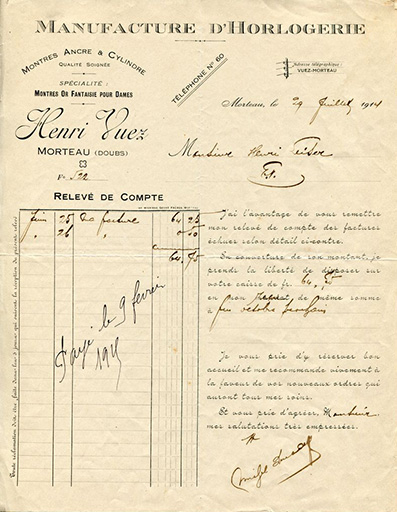 MANUFACTURE D'HORLOGERIE
MONTRES ANCRE & CYLINDRE
QUALITÉ SOIGNÉE
SPÉCIALITÉ:
MONTRES OR FANTAISIE POUR DAMES
TÉLÉPHONE Nº 60
Adresse télégraphique:
VUEZ-MORTEAU
Henri Vuez
MORTEAU (DOUBS)
Morteau, le 29 Juillet 1914
Monsieur Henri
Nº 522
RELEVÉ DE COMPTE
Juin 25 Ma facture 64 25
" 26 " 0 50
64 75
Payé le 9 février
1915
J'ai l'avantage de vous remettre
mon relevé de compte des factures
échues selon détail ci-contre.
En couverture de son montant, je
prends la liberté de disposer sur
votre caisse de fr. 64,75
en mon de même somme
Je vous prie d'y réserver bon
accueil et me recommande vivement à
la faveur de vos nouveaux ordres qui
auront tous mes soins.
Et vous prie d'agréer, Monsieur
mes salutations très empressées.